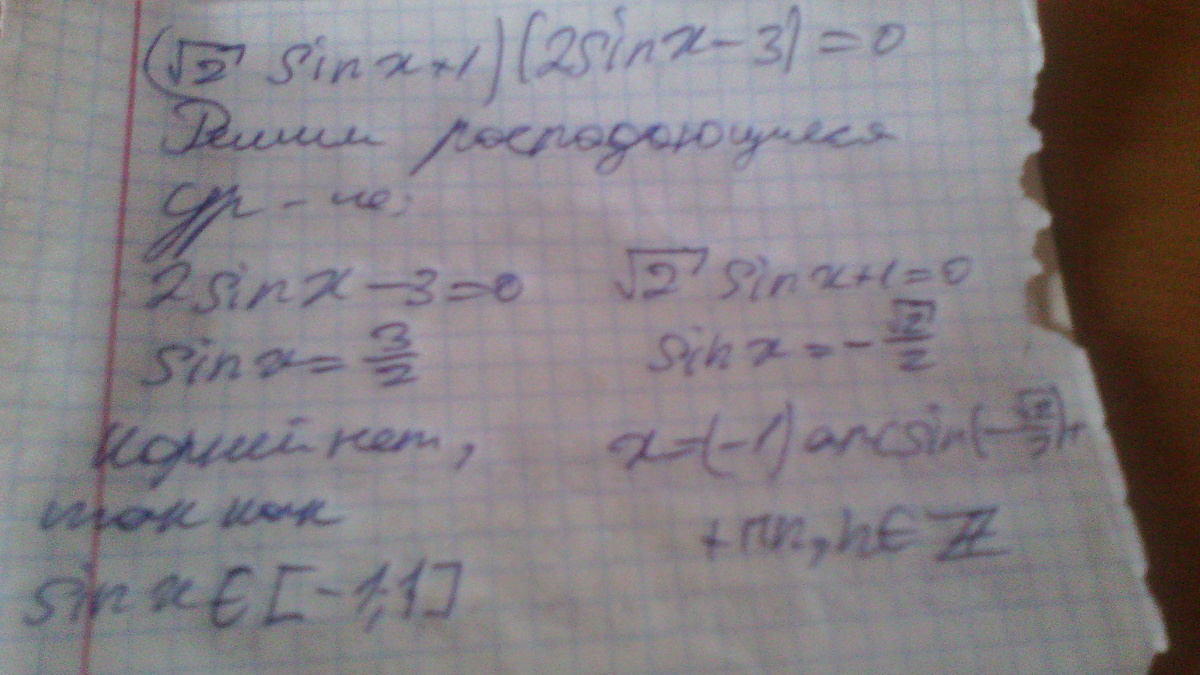 (√2 sinx+1)(2sinx-3)=0
Решим роспадающиеся
ур-ие:
2sinx-3=0
sinx=3/2
корний нет,
так как
sinx∈[-1;1]
√2 sinx+1=0
sinx=-√2/2
x=(-1)arcsin(-√2/3)+
+πn, n∈Z